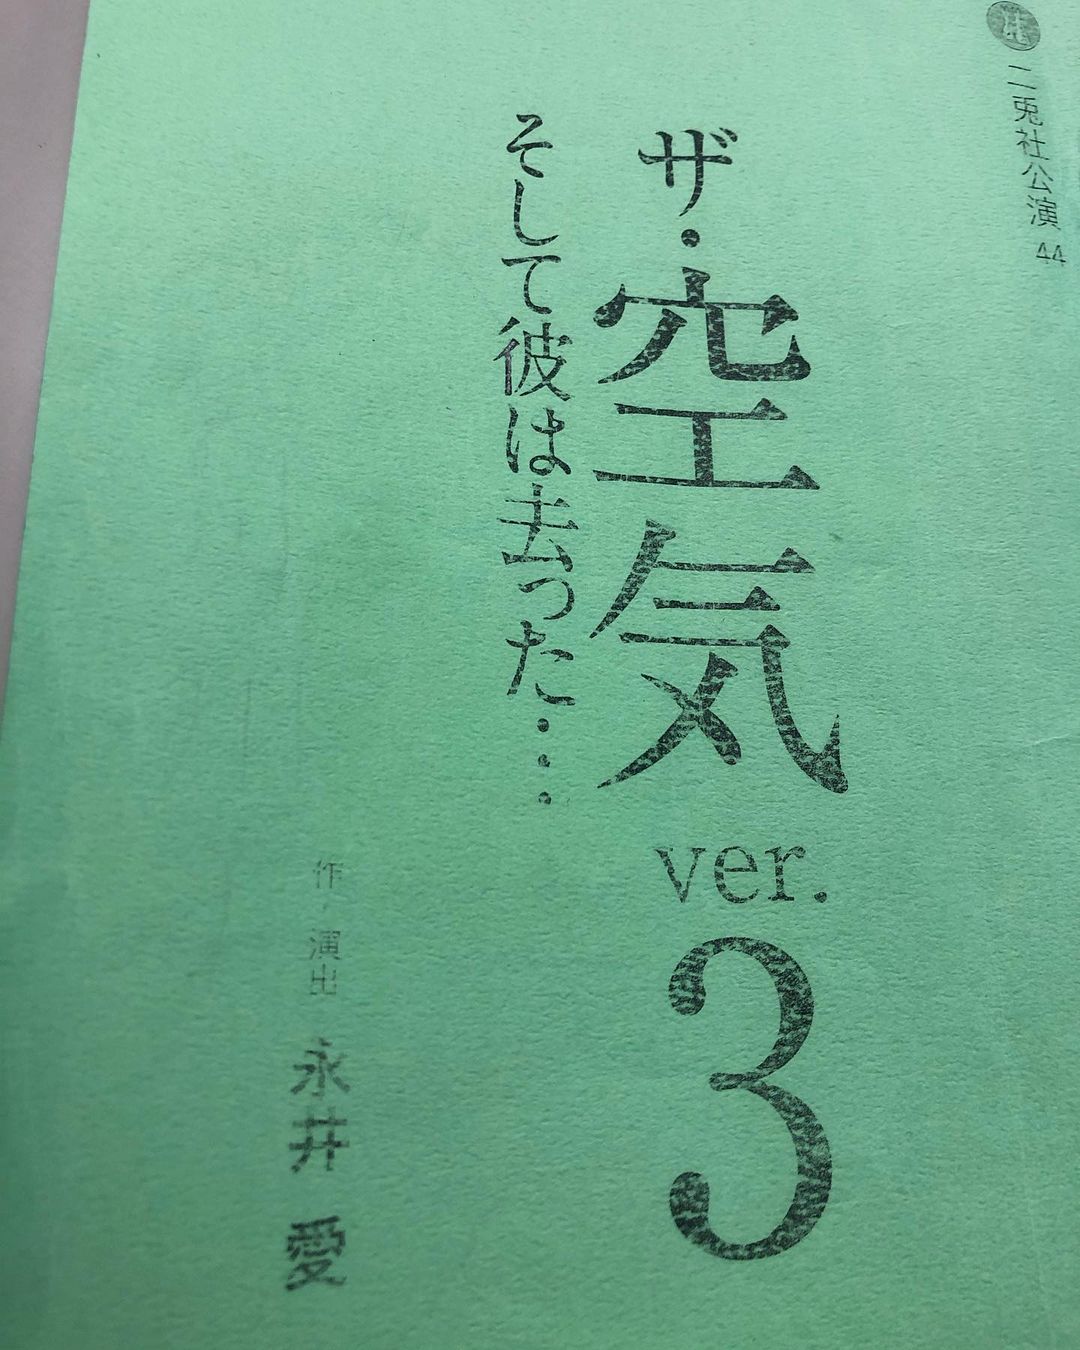 二兎社公演 44
ザ・空気 ver.3
そして彼は去った…
作・演出 永井 愛